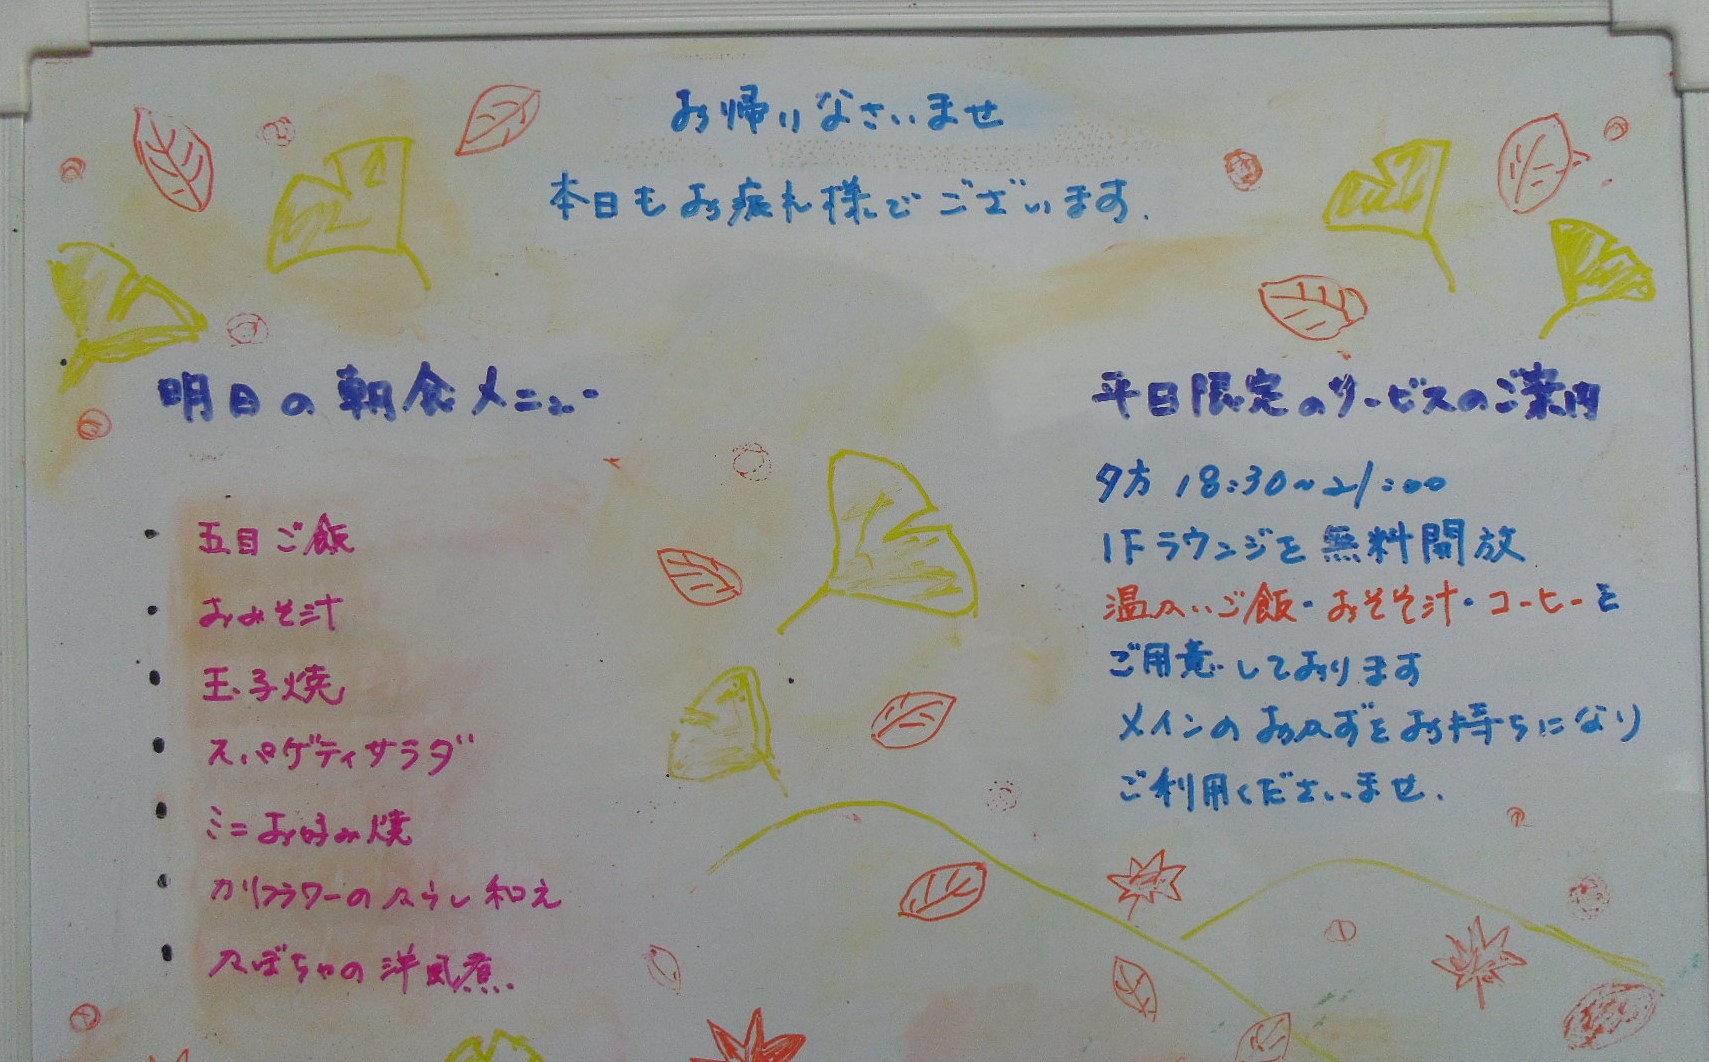 お帰りなさいませ
本日もお疲れ様でございます.
明日の朝食メニュー
・五目ご飯
・おみそ汁
・玉子焼
・スパゲティサラダ
・ミニお好み焼
・カリフラワーのからし和え
・かぼちゃの洋風煮.
平日限定のサービスのご案内
夕方 18:30~21:00
1Fラウンジを無料開放
温かいご飯・おそそ汁・コーヒーを
ご用意しております
メインのおかずをお持ちになり
ご利用くださいませ.